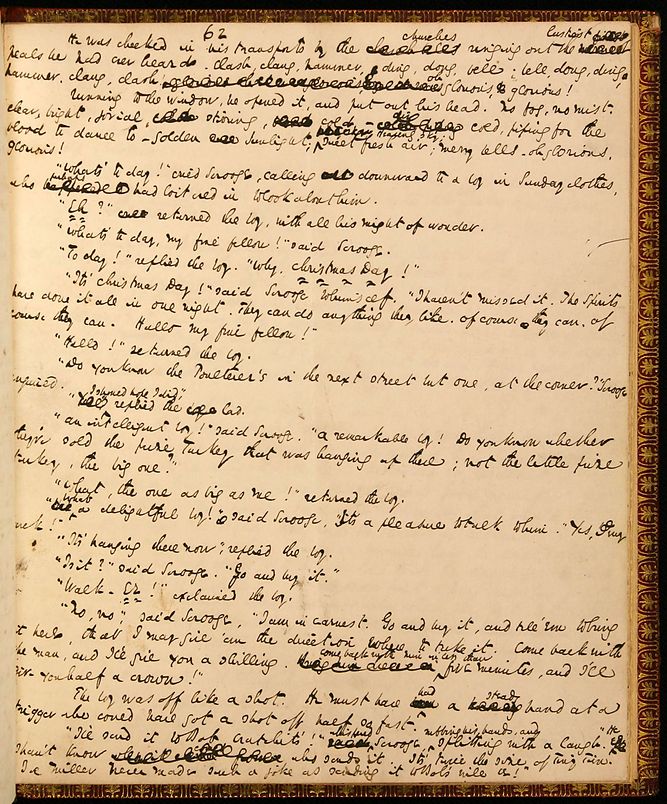 62
He was checked in his transports by the churches ringing out the lustiest
peals he had ever heard. Clash, clang, hammer, ding, dong, bell; bell, dong, ding,
hammer, clang, clash oh glorious glorious!
Running to the window, he opened it, and put out his head. No fog, no mist,
clear, bright, jovial, stirring, cold, cold, piping for the
blood to dance to - Golden Sunlight; Heavenly sky; sweet fresh air; merry bells - oh glorious,
glorious!
"What's to day!" cried Scrooge, calling downward to a boy in Sunday clothes,
who perhaps had loitered in to look about him.
"Eh?" returned the boy, with all his might of wonder.
"What's to day, my fine fellow!" said Scrooge.
"To day!" replied the boy. "Why, Christmas Day!"
"It's Christmas Day!" said Scrooge to himself, "I haven't missed it. The Spirits
have done it all in one night. They can do anything they like. Of course they can. Of
course they can. Hallo my fine fellow!"
"Hallo!" returned the boy.
"Do you know the Poulterer's in the next street but one, at the corner?" Scrooge
inquired.
"I should hope I did," replied the lad.
"An intelligent boy!" said Scrooge. "A remarkable boy! Do you know whether
they've sold the prize Turkey that was hanging up there; not the little prize
Turkey, the big one?"
"What, the one as big as me!" returned the boy.
"What a delightful boy!" said Scrooge, "It's a pleasure to talk to him." "Yes, my
buck!"
"It's hanging there now", replied the boy.
"Is it?" said Scrooge. "Go and buy it."
"Walk-Er!" exclaimed the boy.
"No, no", said Scrooge, "I am in earnest. Go and buy it, and tell 'em to bring
it here, that I may give 'em the direction where to take it. Come back with
the man, and I'll give you a shilling. Come back with him in less than five minutes, and I'll
give you half a crown!"
The boy was off like a shot. He must have had a steady hand at a
trigger who could have got a shot off half so fast.
"I'll send it to Bob Cratchit's!" whispered Scrooge, rubbing his hands, and splitting with a laugh. "He
shan't know who sends it. It's twice the size of Tiny Tim.
Joe Miller never made such a joke as sending it to Bob's will be!"